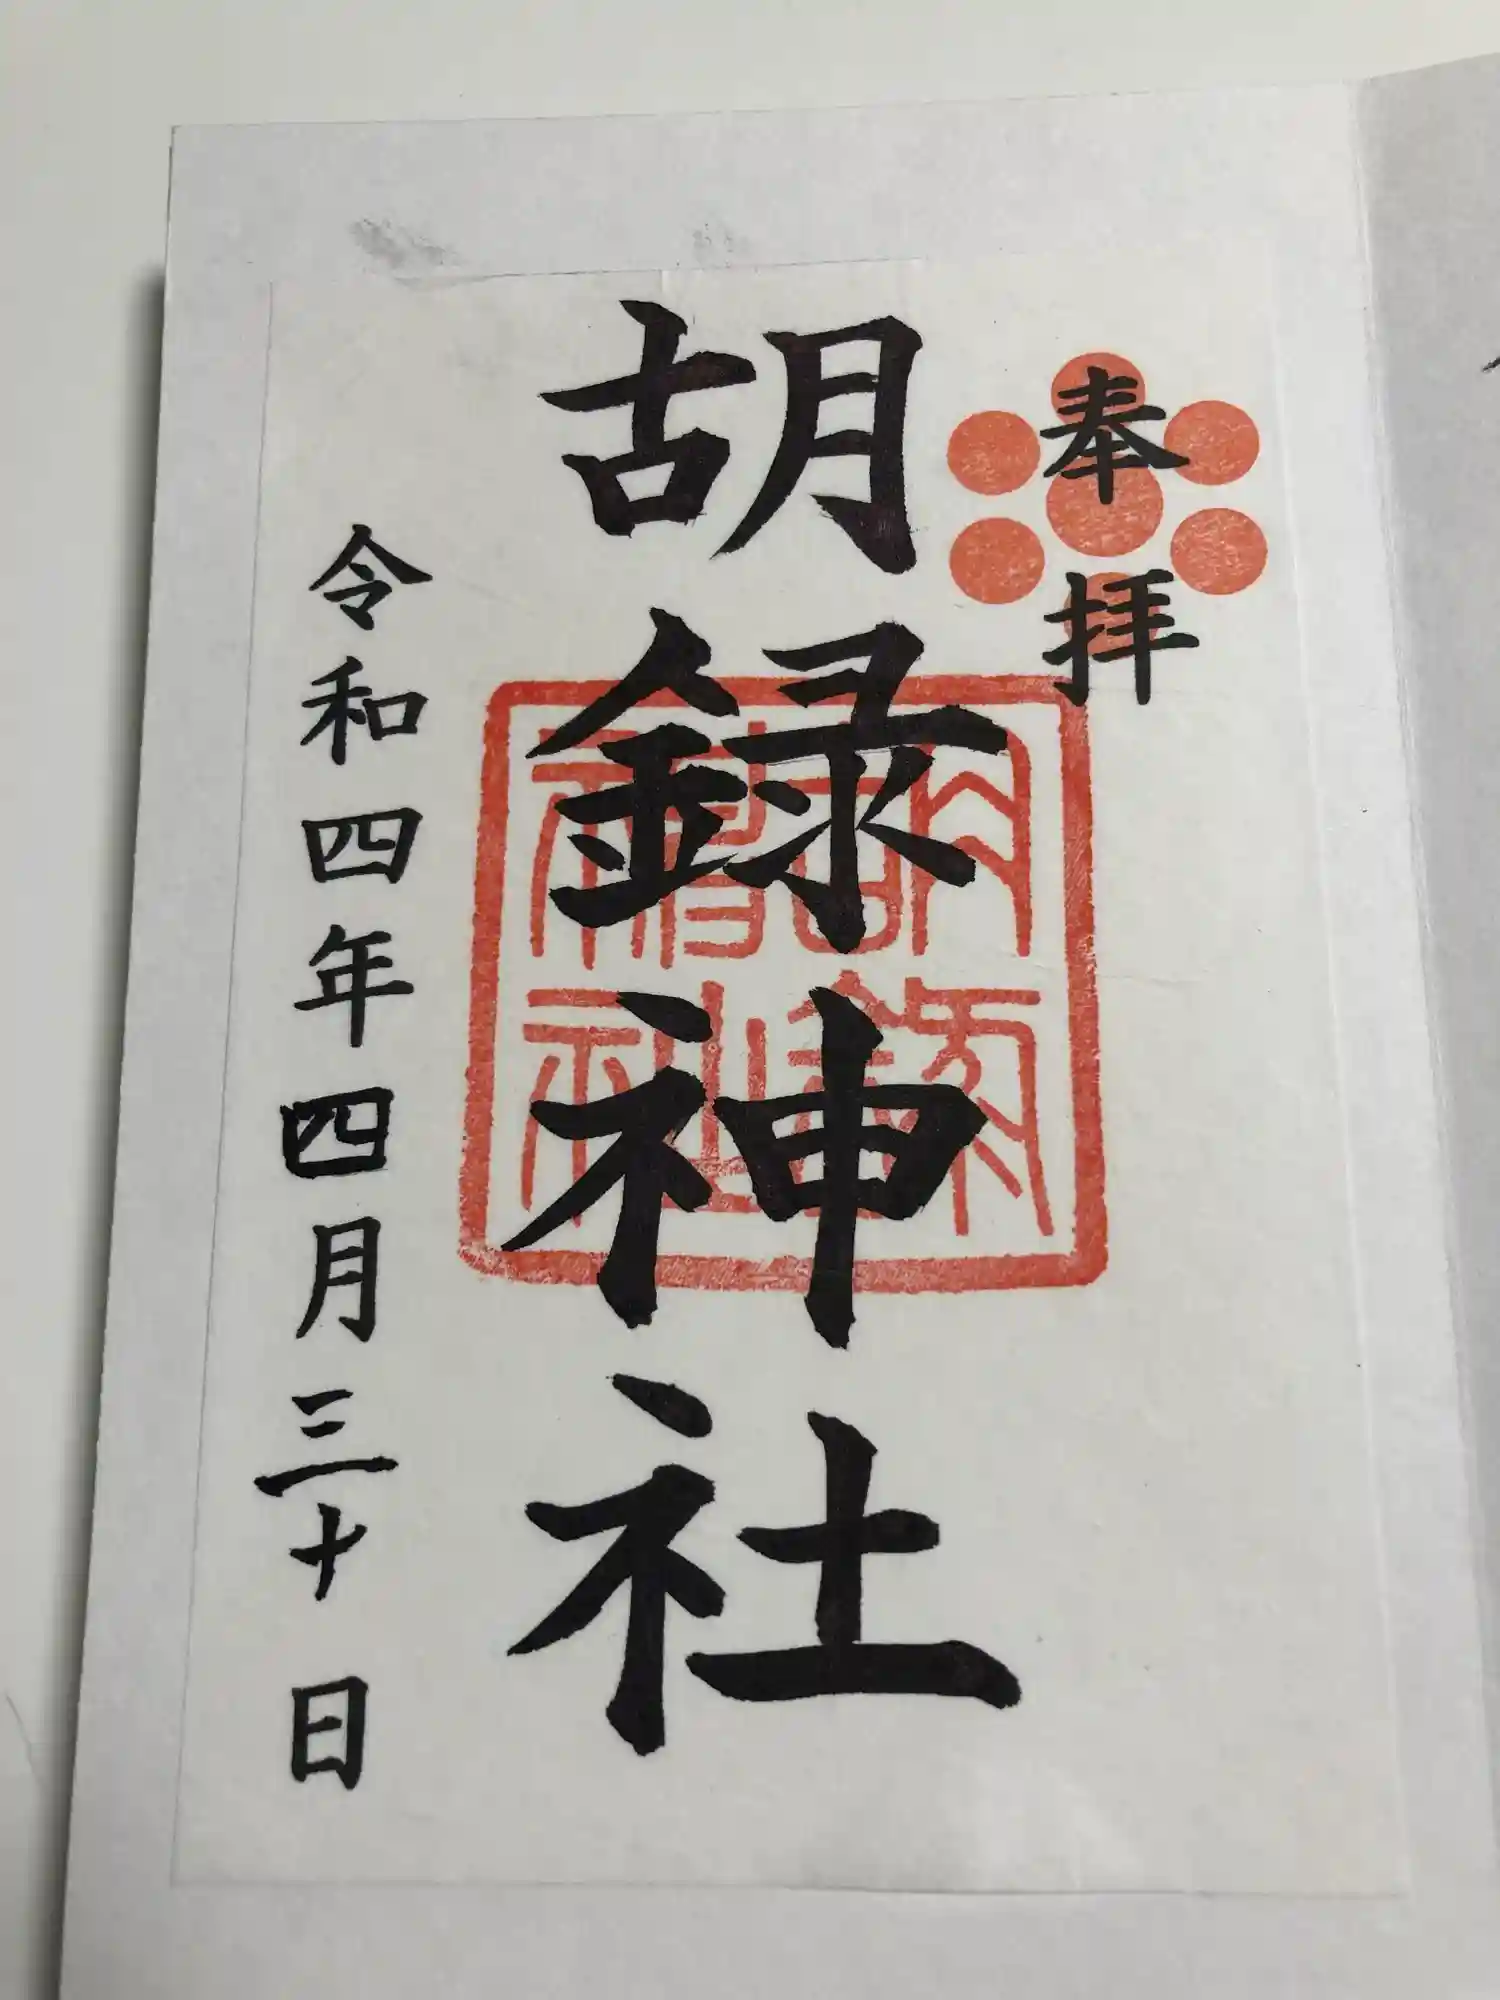 奉拝
胡録神社
胡録神社
令和四年四月三十日